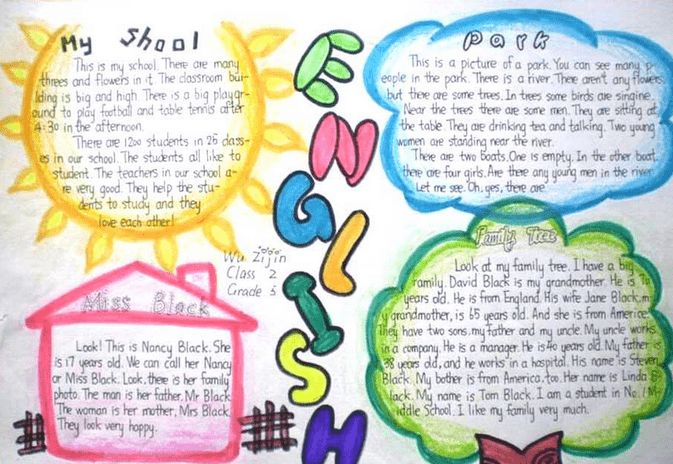 My Shool
This is my school. There are many
threes and flowers in it. The classroom bui-
lding is big and high. There is a big playgr-
ound to play football and table tennis after
4:30 in the afternoon.
There are 1200 students in 25 class-
es in our school. The students all like to
student. The teachers in our school a-
re very good. They help the stu-
dents to study and they
love each other!
ENGLISH
Wu Zijin
Class 2
Grade 5
Park
This is a picture of a park. You can see many p-
eople in the park. There is a river. There aren't any flowers,
but there are some trees. In trees some birds are singine.
Near the trees there are some men. They are sitting at
the table. They are drinking tea and talking. Two young
women are standing near the river.
There are two boats. One is empty. In the other boat,
there are four girls. Are there any young men in the river
Let me see. Oh, yes, there are
Miss Black
Look! This is Nancy Black. She
is 17 years old. We can call her Nancy
or Miss Black. Look, there is her family
photo. The man is her father, Mr Black
The woman is her mother, Mrs Black.
They look very happy.
Family Tree
Look at my family tree. I have a big
family. David Black is my grandmother. He is
years old. He is from England. His wife Jane Black, m
y grandmother, is 65 years old. And she is from America.
They have two sons, my father and my uncle. My uncle works
in a company. He is a manager. He is 40 years old. My father is
38 years old, and he works in a hospital. His name is Steven
Black. My bother is from America, too. Her name is Linda B-
lack. My name is Tom Black. I am a student in No.1 M-
iddle School. I like my family very much.